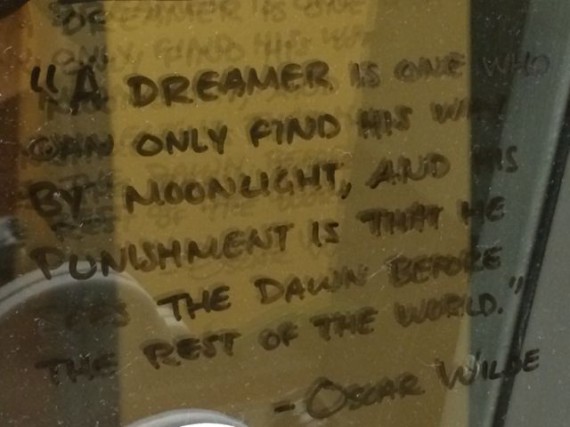 "A DREAMER IS ONE WHO
CAN ONLY FIND HIS WAY
BY MOONLIGHT, AND HIS
PUNISHMENT IS THAT HE
SEES THE DAWN BEFORE
THE REST OF THE WORLD."
- OSCAR WILDE